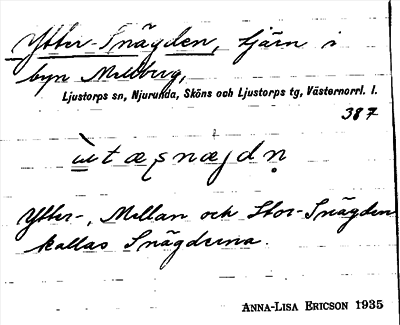 Ytter-Snägden, tjärn i
byn Mellberg,
Ljustorps sn, Njurunda, Sköns och Ljustorps tg, Västernorrl. l.
387
Ytter-, Mellan och Stor-Snägden
kallas Snägderna.
ANNA-LISA ERICSON 1935